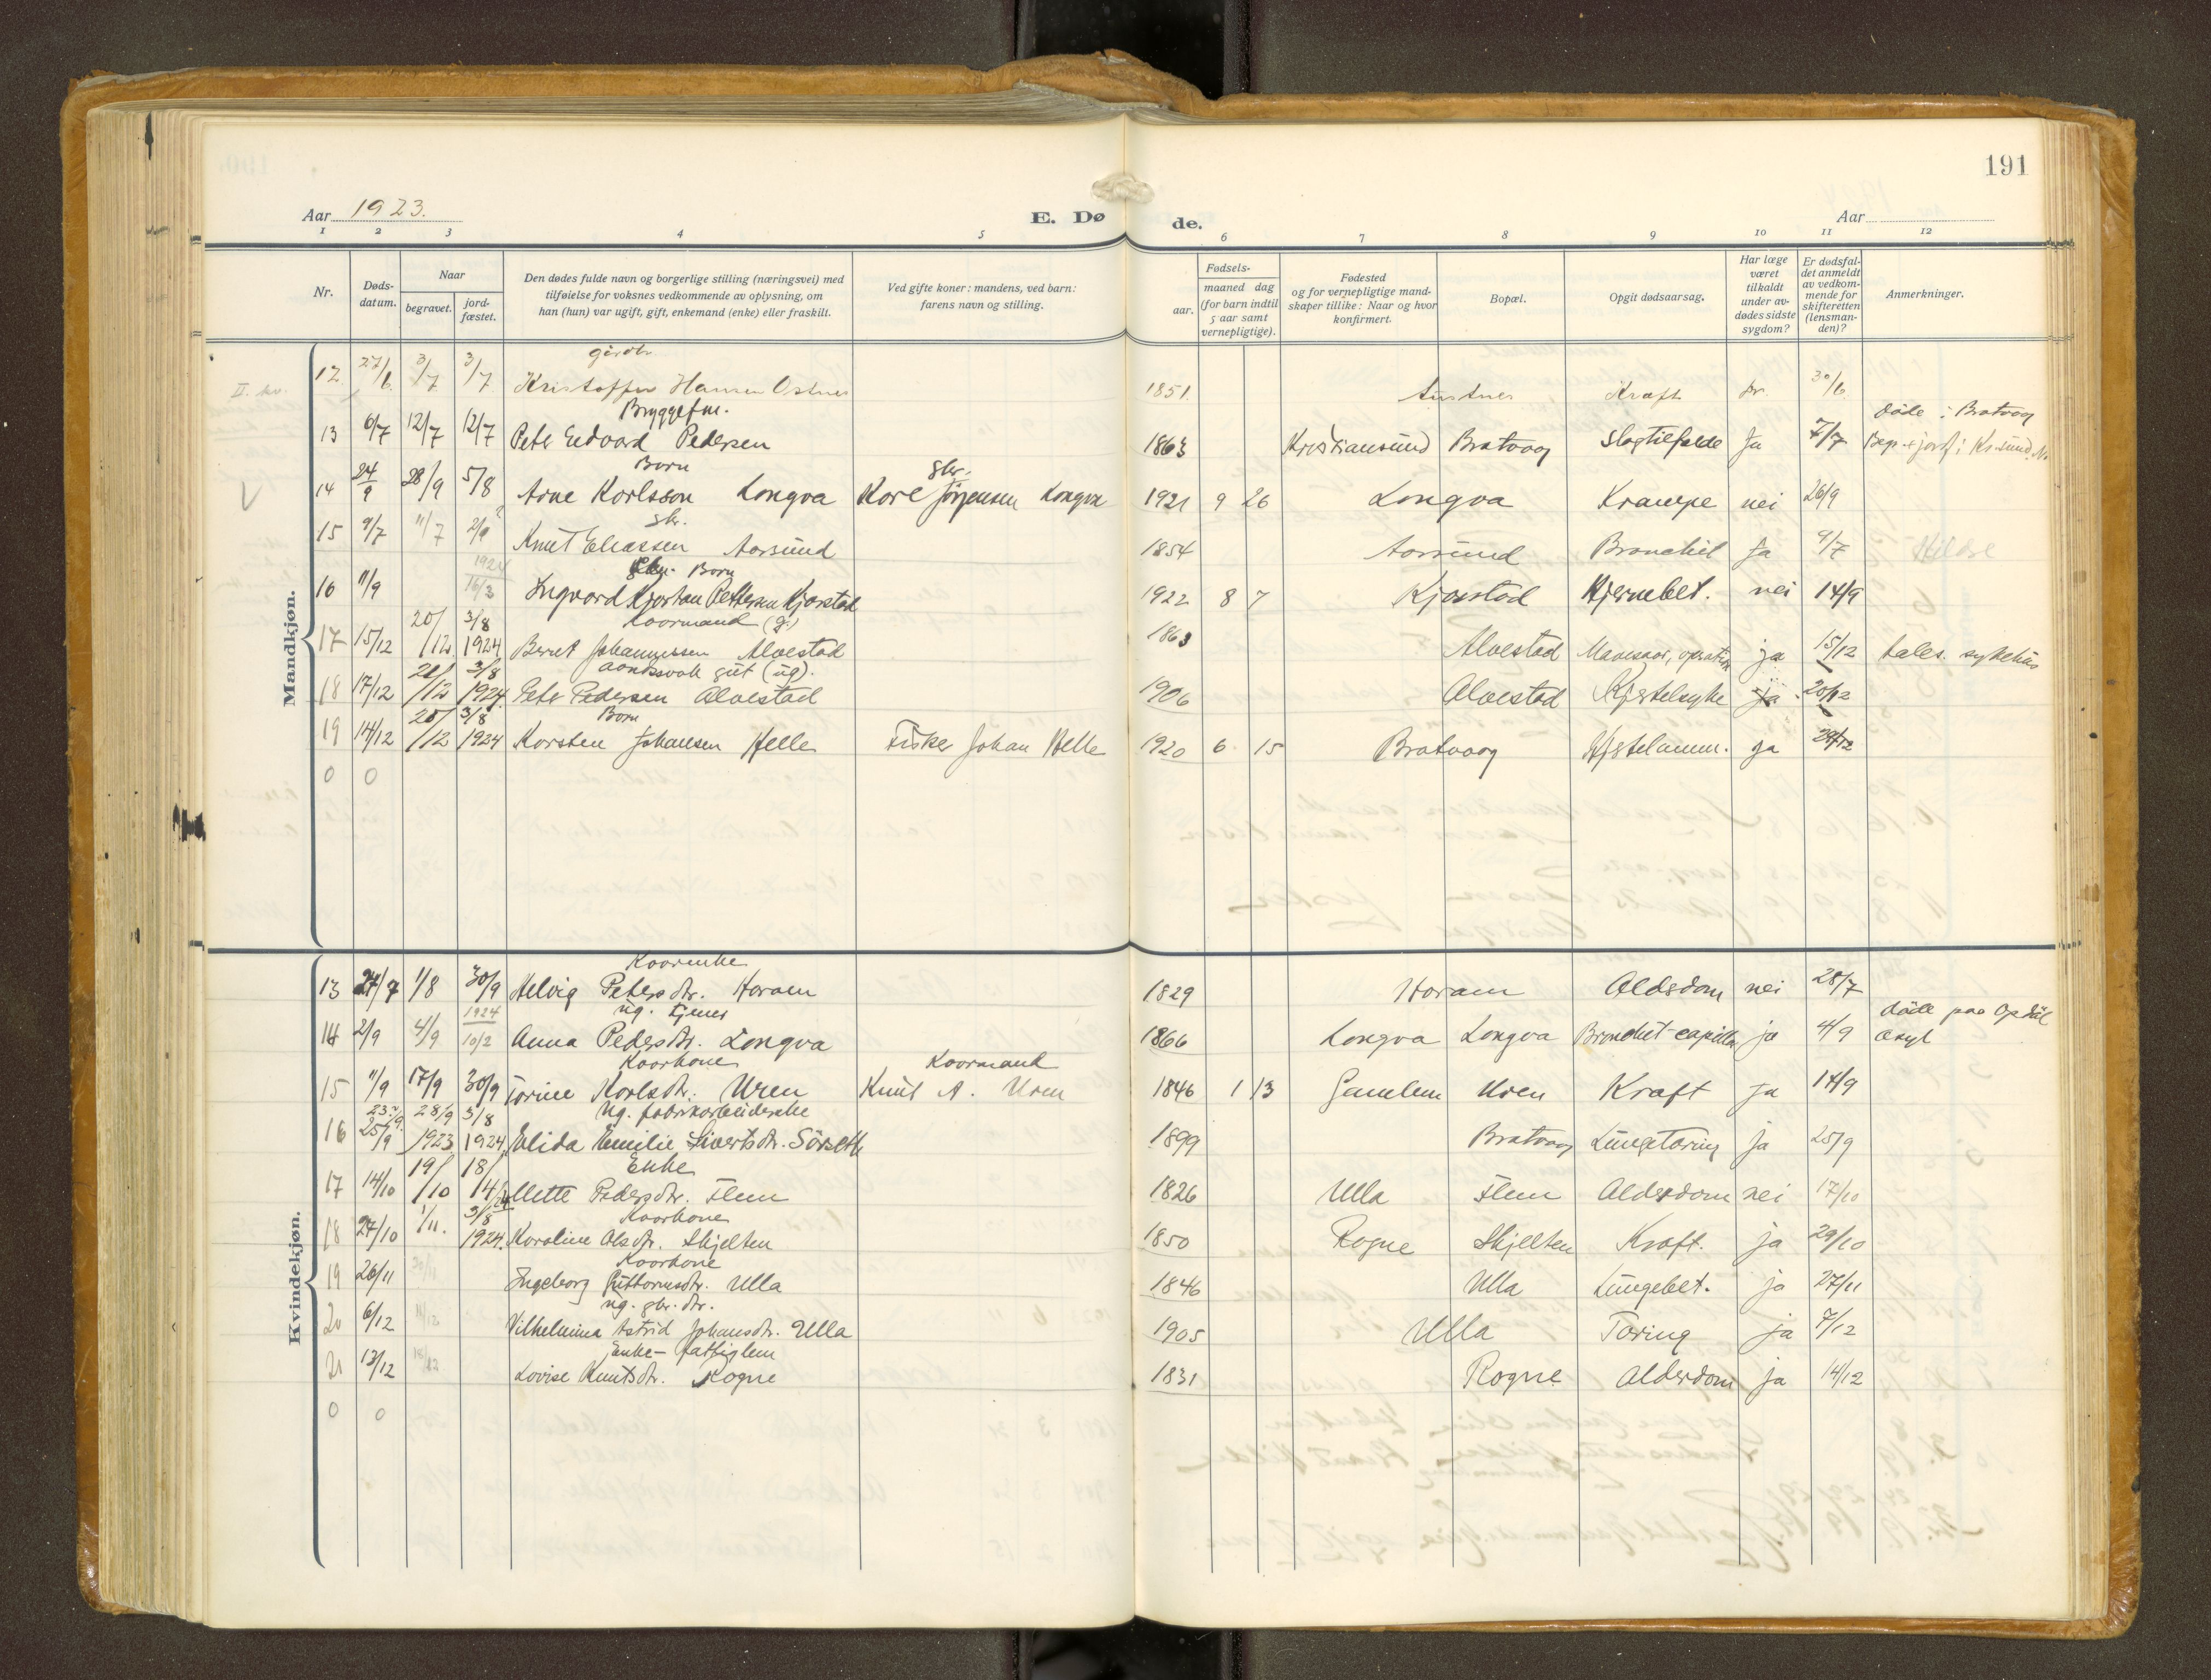 191
Aar 1923.
E. Dø
de.
Aar
1 2 3 4 5 6 7 8 9 10 11 12
Nr.
Døds-
datum.
Naar
begravet.
jord-
fæstet.
Den dødes fulde navn og borgerlige stilling (næringsvei) med
tilføielse for voksnes vedkommende av oplysning, om
han (hun) var ugift, gift, enkemand (enke) eller fraskilt.
Ved gifte koner: mandens, ved barn:
farens navn og stilling.
Fødsels-
aar.
maaned dag
(for barn indtil
5 aar samt
vernepligtige).
Fødested
og for vernepligtige mand-
skaper tillike: Naar og hvor
konfirmert.
Bopæl.
Opgit dødsaarsag.
Har læge
været
tilkaldt
under av-
dødes sidste
sygdom?
Er dødsfal-
det anmeldt
av vedkom-
mende for
skifteretten
(lensman-
den)?
Anmerkninger.
Mandkjøn.
12 27/6 3/7 3/7 Kristoffer Hansen Ostnes 1851 Austnes Kræft 30/6
Bryggefm. døde i Bratvaag
13 6/7 12/7 12/7 Peter Edvard Pedersen 1863 Kristiansund Bratvaag Slagtilfælde Ja 7/7
Barn gbr.
V 14 24/9 28/9 5/8 Arne Karlsson Longva Kare Jørgensen Longva 1921 9 26 Longva Krampe nei 26/9
gbr.
15 9/7 11/7 2/9 Knut Eliassen Aarsund 1854 Aarsund Bronchit Ja 9/7 Hildre
1924 Barn
16 11/9 16/3 Ingvard Kjartan Pettersen Kjørstad 1922 8 7 Kjørstad Hjernebet. nei 14/9
Kaarmand (g.)
17 15/12 20/12 3/8 1924 Berret Johannessen Alvestad 1863 Alvestad Mavesaar, operation ja 15/12 Aales. sykehus
aandssvak gut (ug).
18 17/12 21/12 3/8 1924 Peter Pedersen Alvestad 1906 Alvestad Kjertelsyke ja 20/12
Barn
19 14/12 20/12 3/8 1924 Karsten Johansen Helle Fisker Johan Helle 1920 6 15 Bratvaag ja
0 0
Kvindekjøn.
Kaarenke
13 27/7 1/8 30/9 Helvig Petersdtr. Haram 1829 Haram Aldsdom nei 28/7
1924 ug. tjener døde paa Opdøl
14 2/9 4/9 10/2 Anna Pedersdtr. Longva 1866 Longva Longva Bronchit-capillar ja 4/9 asyl
Kaarkone Kaarmand
15 11/9 17/9 30/9 Torine Karlsdtr. Uren Knut A. Uren 1846 1 13 Gamlem Uren Kræft ja 14/9
ug. fabrikarbeiderske
16 23?/9 25/9 28/9 1923 3/8 1924 Elida Emilie Sivertsdtr. Sørseth 1899 Bratvaag Lungetæring ja 25/9
Enke
17 14/10 19/10 18/4 24 Mette Pedersdtr. Flem 1826 Ulla Flem Alderdom nei 17/10
Kaarkone
18 27/10 1/11. 3/8 1924. Karoline Olsdtr. Skjelten 1850 Rogne Skjelten Kræft. ja 29/10
Kaarkone
19 26/11 Engeborg Guttormsdtr. Ulla 1846 Ulla Lungebet. ja 27/11
ug. gbr. dtr.
20 6/12 11/12 Vilhelmina Astrid Johansdtr. Ulla 1905 Ulla Tæring ja 7/12
Enke- fattiglem
21 13/12 18/12 Lovise Knutsdtr. Rogne 1831 Rogne Alderdom ja 14/12
0 0